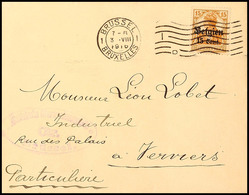 BRUSSEL
1
7-8
3-VIII
1916
BRUXELLES
15 15
Belgien
15 Cent.
Monsieur Léon Lobet
Industriel
Rue des Palais
à Verviers
Particulière